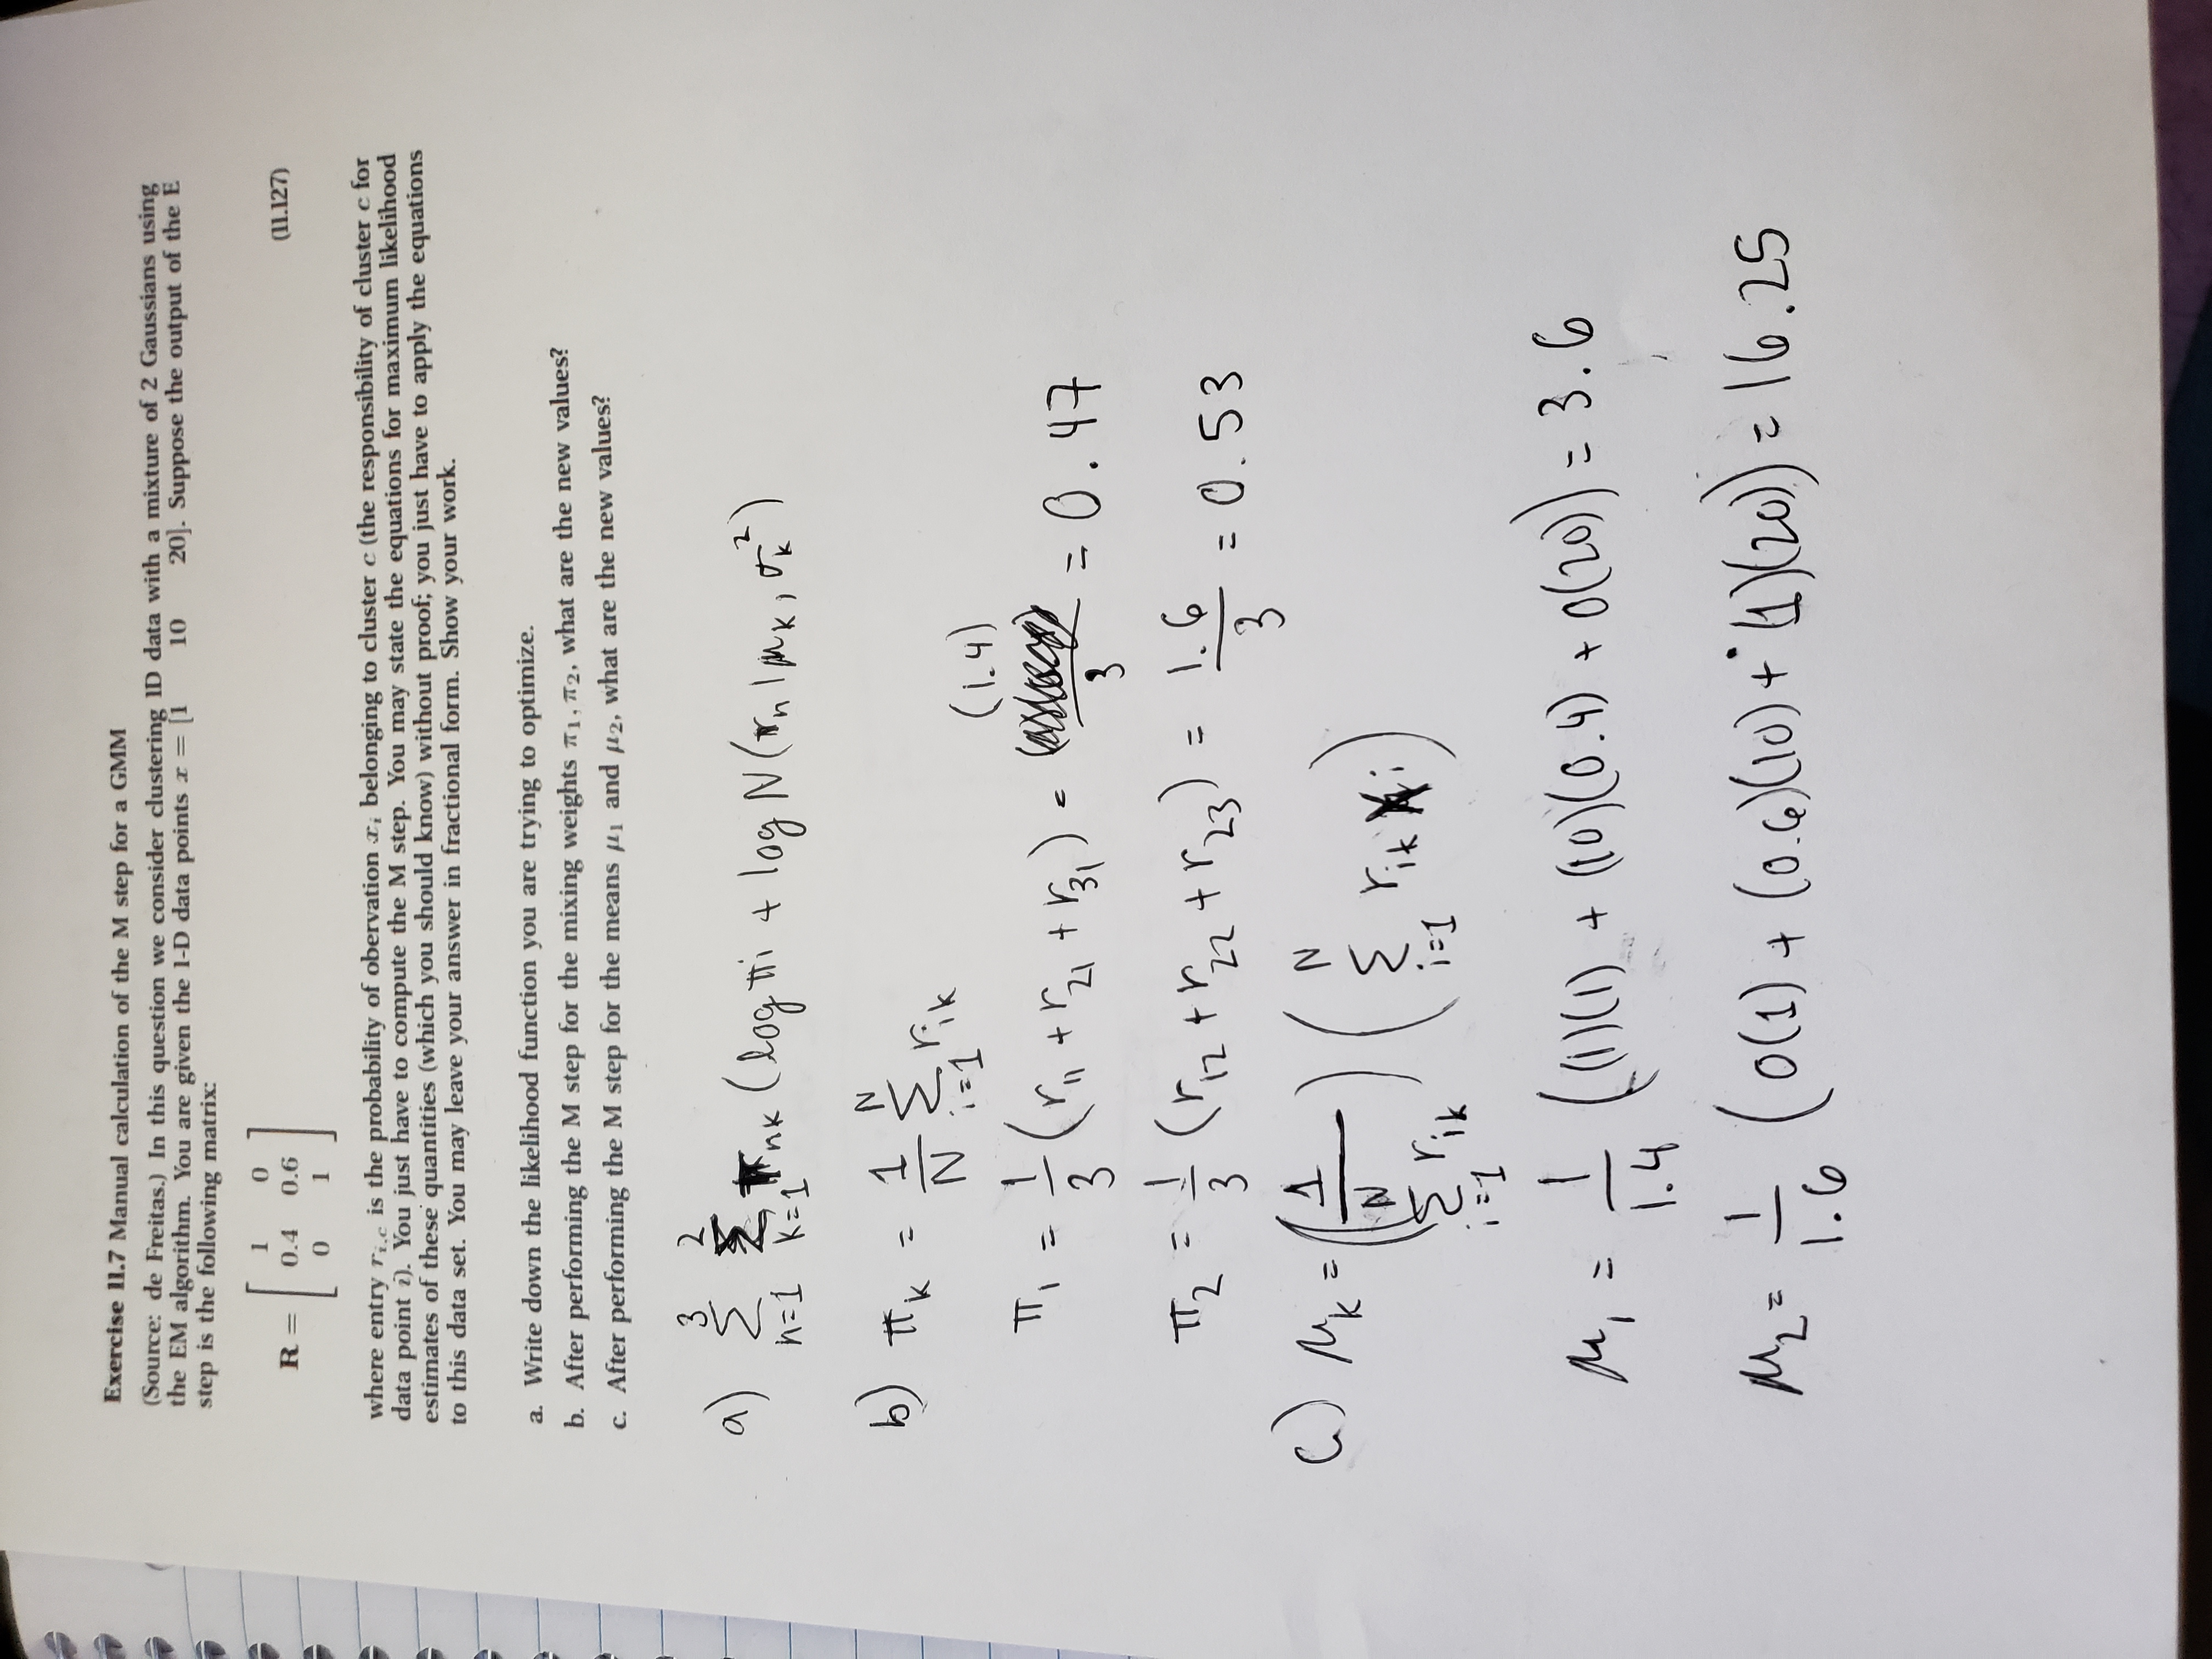 Exercise 11.7 Manual calculation of the M step for a GMM
(Source: de Freitas.) In this question we consider clustering 1D data with a mixture of 2 Gaussians using
the EM algorithm. You are given the 1-D data points x = [1 10 20]. Suppose the output of the E
step is the following matrix:
R = [ 1 0
0.4 0.6
0 1 ] (11.127)
where entry r_{i,c} is the probability of obervation x_i belonging to cluster c (the responsibility of cluster c for
data point i). You just have to compute the M step. You may state the equations for maximum likelihood
estimates of these quantities (which you should know) without proof; you just have to apply the equations
to this data set. You may leave your answer in fractional form. Show your work.
a. Write down the likelihood function you are trying to optimize.
b. After performing the M step for the mixing weights π_1, π_2, what are the new values?
c. After performing the M step for the means μ_1 and μ_2, what are the new values?
a) Σ_{n=1}^{3} Σ_{k=1}^{2} _{nk} (log πi + log N(_n | μ_k, σ_k^2)
b) π_k = 1/N Σ_{i=1}^{N} r_{ik}
π_1 = 1/3 (r_{11} + r_{21} + r_{31}) = (1.4)/3 = 0.47
π_2 = 1/3 (r_{12} + r_{22} + r_{23}) = 1.6/3 = 0.53
c) μ_k = (1/Σ_{i=1}^{N} r_{ik}) (Σ_{i=1}^{N} r_{ik} x_i)
μ_1 = 1/1.4 ((1)(1) + (10)(0.4) + 0(20)) = 3.6
μ_2 = 1/1.6 (0(1) + (0.6)(10) + (1)(20)) = 16.25